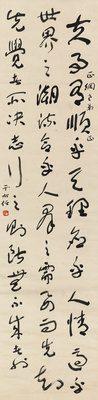 正綱先生正
夫事有順乎天理應乎人情適乎
世界之潮流合乎人群之需要而為先知
先覺者所決志行之則斷無不成者也
于右任